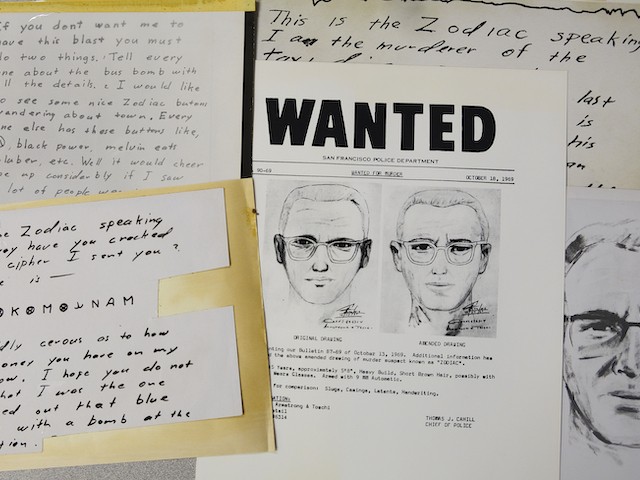 if you dont want me to
have this blast you must
do two things. Tell every
one about the bus bomb with
all the details. I would like
to see some nice Zodiac butons
wandering about town. Every
one else has these buttons like,
black power, melvin eats
bluber, etc. Well it would cheer
me up considerbly if I saw
lot of people
This is the Zodiac speaking
I am the murderer of the
last
is
his
the Zodiac speaking
have you cracked
cipher I sent you?
is
NAM
cerous as to how
money you have on my
now. I hope you do not
that I was the one
ed out that blue
with a bomb at the
tion.
WANTED
SAN FRANCISCO POLICE DEPARTMENT
90-69 WANTED FOR MURDER OCTOBER 18, 1969
ORIGINAL DRAWING AMENDED DRAWING
ting our Bulletin 87-69 of October 13, 1969. Additional information has
the above amended drawing of murder suspect known as "ZODIAC".
Years, approximately 5'8", Heavy Build, Short Brown Hair, possibly with
Wears Glasses. Armed with 9 MM Automatic.
for comparison: Slugs, Casings, Latents, Handwriting.
Armstrong & Toschi
THOMAS J. CAHILL
CHIEF OF POLICE